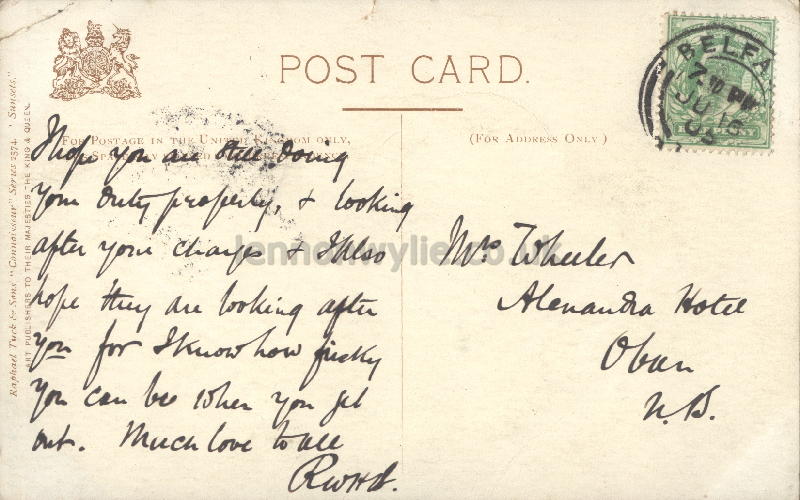 POST CARD.
(FOR POSTAGE IN THE UNITED KINGDOM ONLY,
(FOR ADDRESS ONLY)
BELFA
7 PM
JU 16
03
Raphael Tuck & Sons' "Connoisseur" Series 2574. "Sunsets."
ART PUBLISHERS TO THEIR MAJESTIES THE KING & QUEEN.
I hope you are still doing
your duty properly, & looking
after your charges & I also
hope they are looking after
you for I know how frisky
you can be when you get
out. Much love to all
RWHd.
Mrs Wheeler
Alexandra Hotel
Oban
N.B.
lennonwylie.co.uk